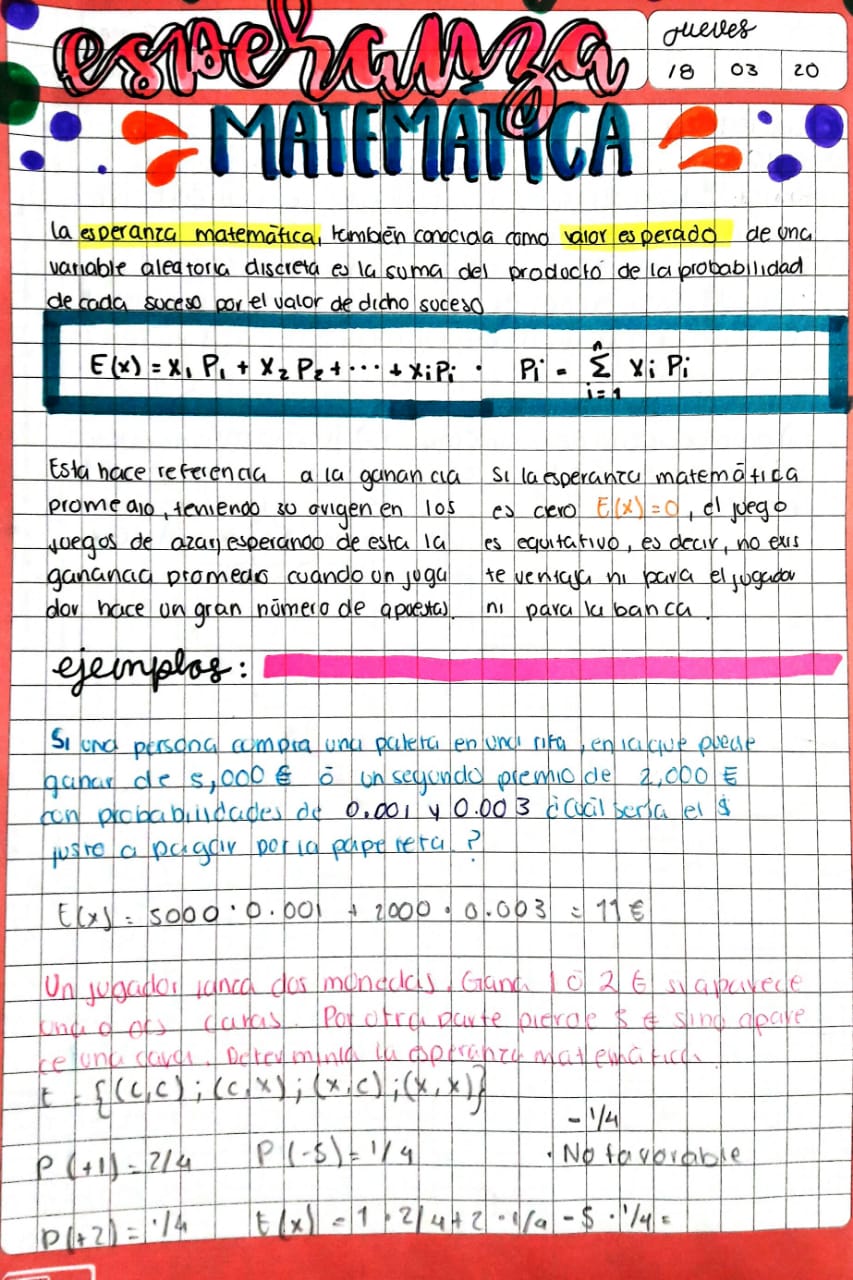 esperanza
MATEMÁTICA
Jueves
18 03 20
La esperanza matemática, también conocida como valor esperado de una
variable aleatoria discreta es la suma del producto de la probabilidad
de cada suceso por el valor de dicho suceso
E(x) = x₁ P₁ + x₂ P₂ + ··· + xi Pi · Pi = Σ xi Pi
n
i = 1
Esta hace referencia a la ganancia
promedio, teniendo su origen en los
juegos de azar, esperando de esta la
ganancia promedio cuando un juga
dor hace un gran número de apuestas.
Si la esperanza matemática
es cero E(x) = 0, el juego
es equitativo, es decir, no exis
te ventaja ni para el jugador
ni para la banca.
ejemplos:
Si una persona compra una paleta en una rifa, en la que puede
ganar de 5,000 € ó un segundo premio de 2,000 €
con probabilidades de 0.001 y 0.003 ¿cuál sería el $
justo a pagar por la papeleta?
E(x) = 5000 · 0.001 + 2000 · 0.003 = 11 €
Un jugador lanza dos monedas. Gana 1 ó 2 € si aparece
una o dos caras. Por otra parte pierde 5 € si no apare
ce una cara. Determina la esperanza matemática.
E = {(c,c) ; (c,x) ; (x,c) ; (x,x)}
P(+1) = 2/4
P(-5) = 1/4
- 1/4
· No favorable
P(+2) = 1/4
E(x) = 1 · 2/4 + 2 · 1/4 - 5 · 1/4 =